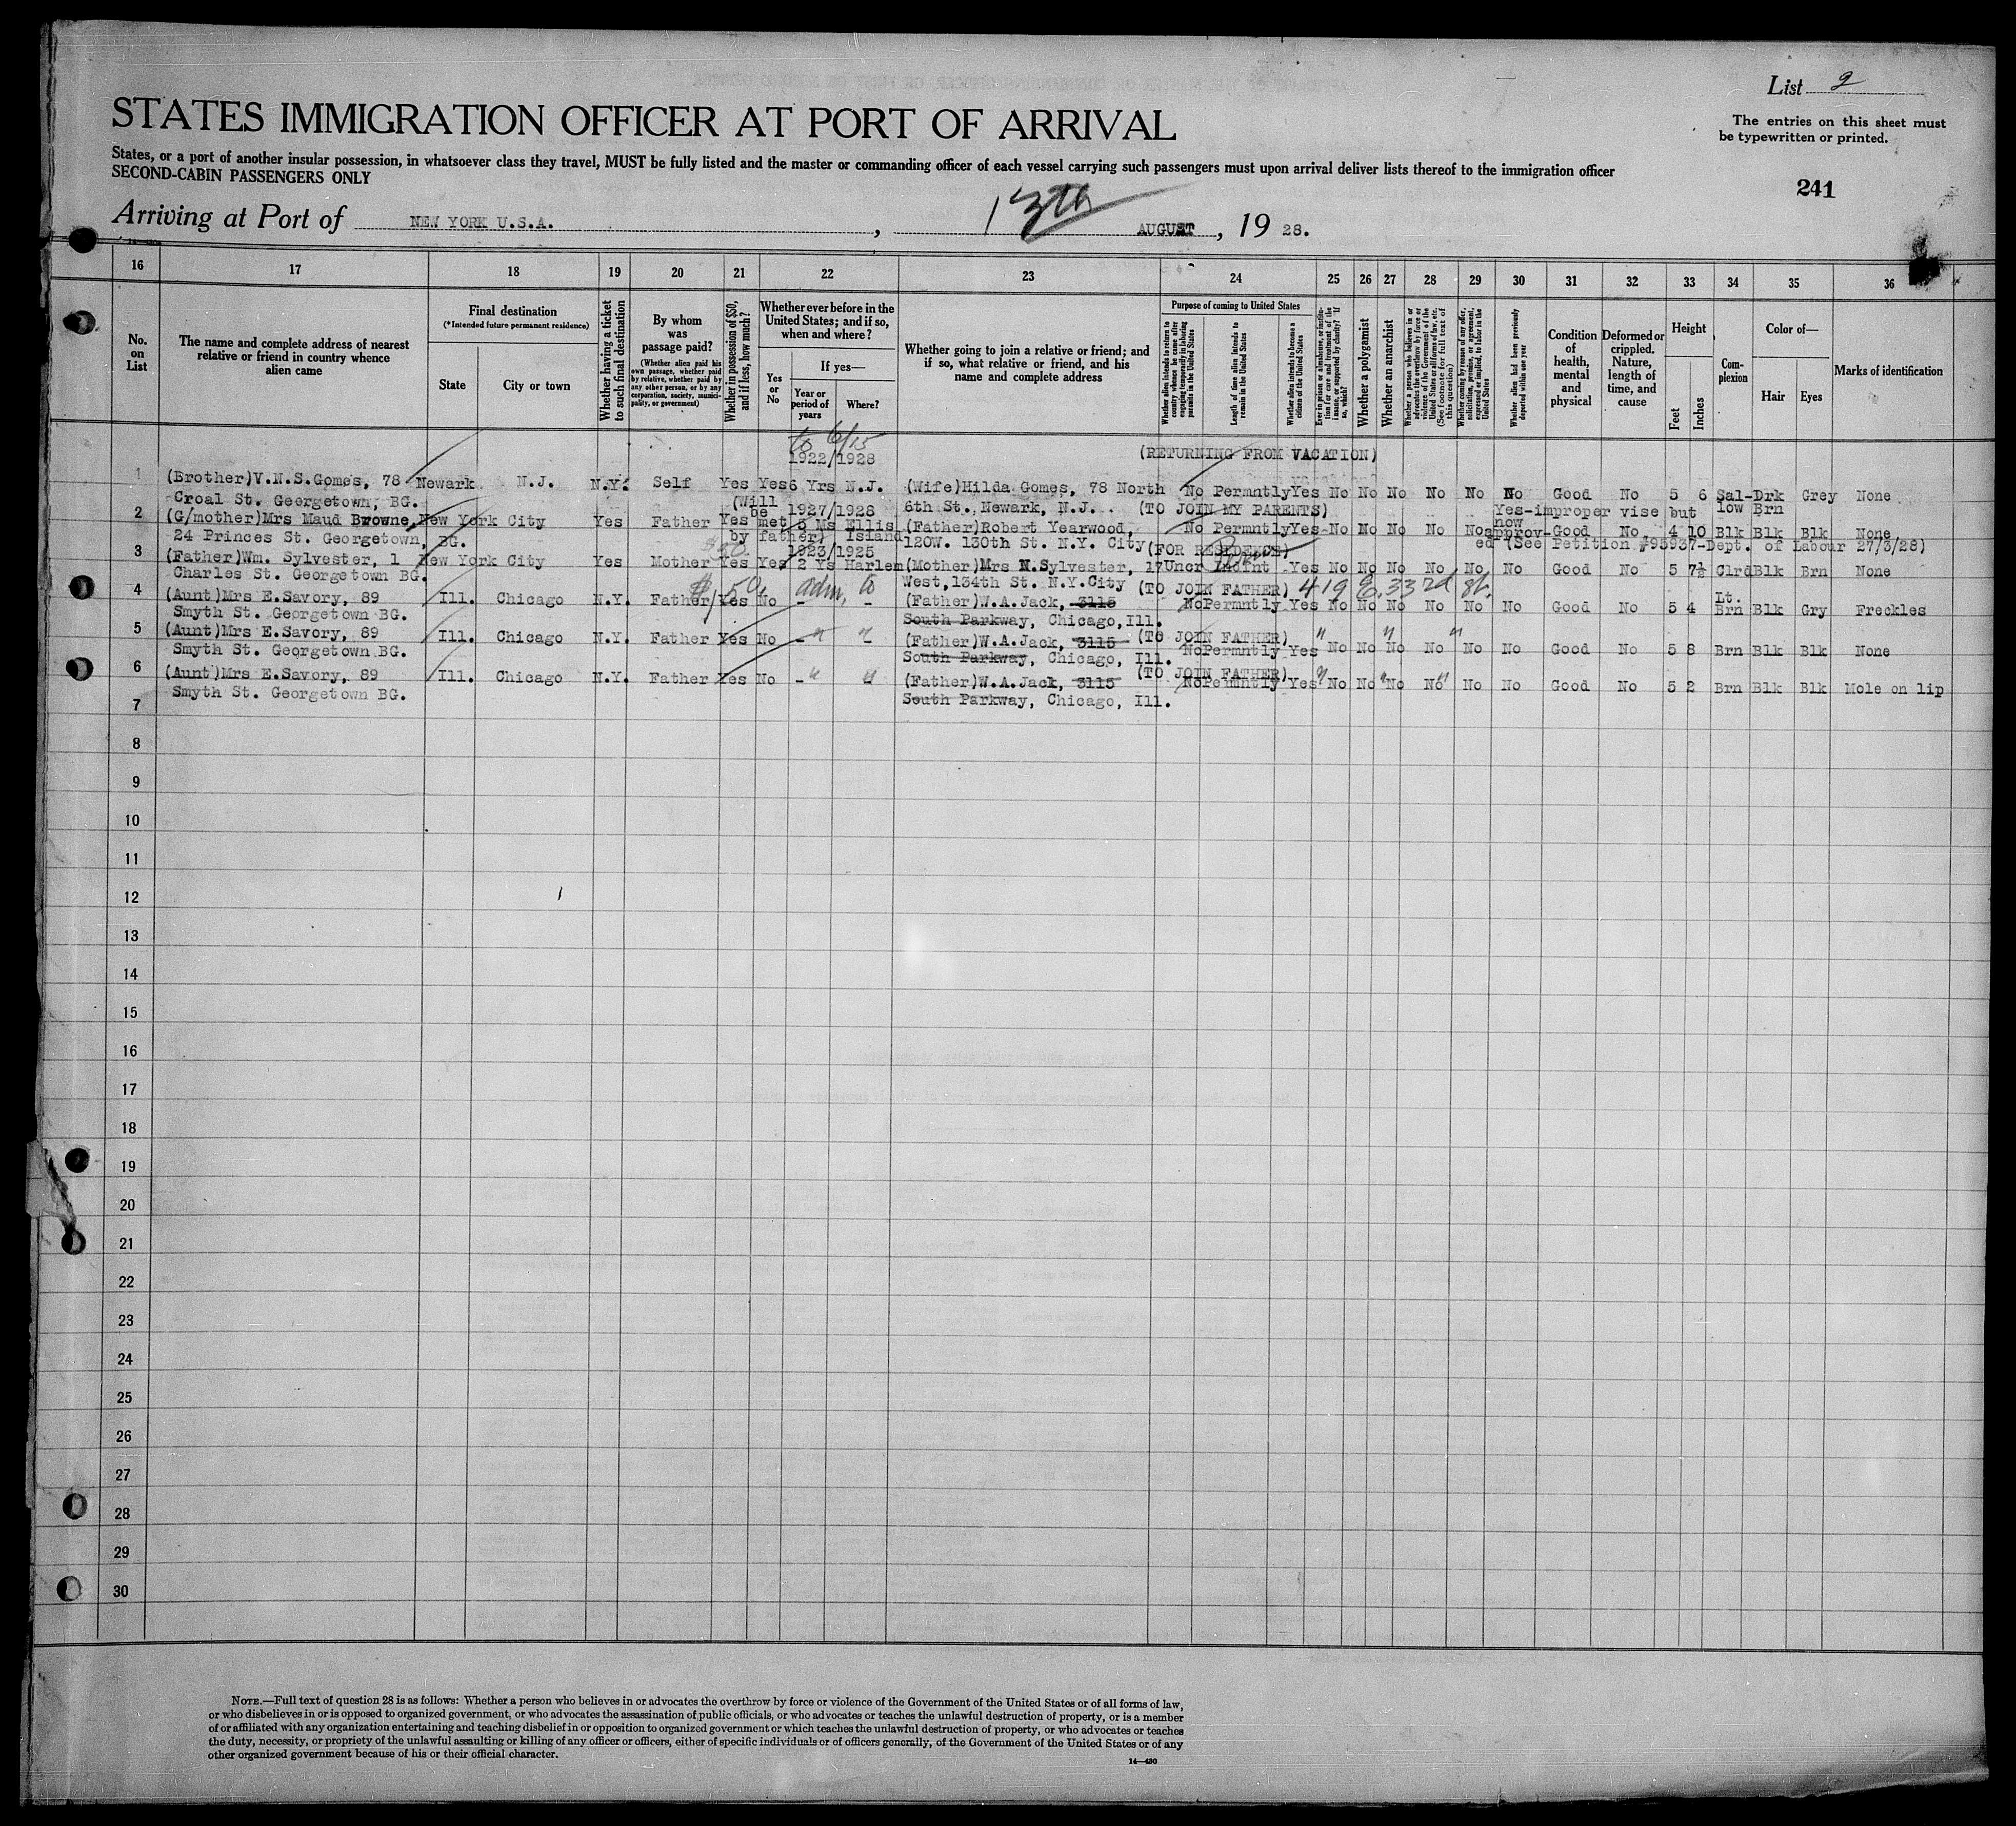 List 2
STATES IMMIGRATION OFFICER AT PORT OF ARRIVAL
The entries on this sheet must
be typewritten or printed.
States, or a port of another insular possession, in whatsoever class they travel, MUST be fully listed and the master or commanding officer of each vessel carrying such passengers must upon arrival deliver lists thereof to the immigration officer
SECOND-CABIN PASSENGERS ONLY
241
Arriving at Port of NEW YORK U.S.A. , 13th AUGUST , 19 28.
16 17 18 19 20 21 22 23 24 25 26 27 28 29 30 31 32 33 34 35 36
No. on List
The name and complete address of nearest relative or friend in country whence alien came
Final destination
(*Intended future permanent residence)
State
City or town
Whether having a ticket to such final destination
By whom was passage paid?
(Whether alien paid his own passage, whether paid by relative, whether paid by any other person, or by any corporation, society, municipality, or government)
Whether in possession of $50, and if less, how much?
Whether ever before in the United States; and if so, when and where?
Yes or No
If yes—
Year or period of years
Where?
Whether going to join a relative or friend; and if so, what relative or friend, and his name and complete address
Purpose of coming to United States
Whether alien intends to return to country whence he came after engaging temporarily in laboring pursuits in the United States
Length of time alien intends to remain in the United States
Whether alien intends to become a citizen of the United States
Ever in prison or almshouse, or institution for care and treatment of the insane, or supported by charity? If so, which?
Whether a polygamist
Whether an anarchist
Whether a person who believes in or advocates the overthrow by force or violence of the Government of the United States or all forms of law, etc. (See footnote for full text of this question)
Whether coming by reason of any offer, solicitation, promise, or agreement, expressed or implied, to labor in the United States
Whether alien had been previously deported within one year
Condition of health, mental and physical
Deformed or crippled. Nature, length of time, and cause
Height
Feet
Inches
Complexion
Color of—
Hair
Eyes
Marks of identification
to 6/15
1922/1928 (RETURNING FROM VACATION)
1 (Brother)V.N.S.Gomes, 78 Newark N.J. N.Y. Self Yes Yes 6 Yrs N.J. (Wife)Hilda Gomes, 78 North No Permntly Yes No No No No No No Good No 5 6 Sal- Drk Grey None
Croal St. Georgetown, BG. (Will be 1927/1928 6th St., Newark, N.J. (TO JOIN MY PARENTS) Yes-improper vise but low Brn
2 (G/mother)Mrs Maud Browne, New York City Yes Father Yes met 5 Ms Ellis (Father)Robert Yearwood, No Permntly Yes No No No No No now approv- Good No 4 10 Blk Blk Blk None
24 Princes St. Georgetown, BG. by father) Island 120W. 130th St. N.Y. City (FOR RESIDENCE) ed (See Petition #95937-Dept. of Labour 27/3/28)
1923/1925
3 (Father)Wm. Sylvester, 1 New York City Yes Mother Yes Yes 2 Ys Harlem (Mother)Mrs N.Sylvester, 17 Uncr Indfnt Yes No No No No No No Good No 5 7½ Clrd Blk Brn None
Charles St. Georgetown BG. $150, adm. to West,134th St. N.Y.City (TO JOIN FATHER) 419 E. 33rd St.
4 (Aunt)Mrs E.Savory, 89 Ill. Chicago N.Y. Father Yes No - - (Father)W.A.Jack, 3115 No Permntly Yes No No No No No No Good No 5 4 Lt. Brn Blk Gry Freckles
Smyth St. Georgetown BG. South Parkway, Chicago,Ill.
5 (Aunt)Mrs E.Savory, 89 Ill. Chicago N.Y. Father Yes No - " " (Father)W.A.Jack, 3115 (TO JOIN FATHER) " " " No Permntly Yes No No No No No No Good No 5 8 Brn Blk Blk None
Smyth St. Georgetown BG. South Parkway, Chicago, Ill.
6 (Aunt)Mrs E.Savory, 89 Ill. Chicago N.Y. Father Yes No - " " (Father)W.A.Jack, 3115 (TO JOIN FATHER) " " " No Permntly Yes No No No No No No Good No 5 2 Brn Blk Blk Mole on lip
Smyth St. Georgetown BG. South Parkway, Chicago, Ill.
7
8
9
10
11
12
13
14
15
16
17
18
19
20
21
22
23
24
25
26
27
28
29
30
NOTE.—Full text of question 28 is as follows: Whether a person who believes in or advocates the overthrow by force or violence of the Government of the United States or of all forms of law,
or who disbelieves in or is opposed to organized government, or who advocates the assassination of public officials, or who advocates or teaches the unlawful destruction of property, or is a member
of or affiliated with any organization entertaining and teaching disbelief in or opposition to organized government or which teaches the unlawful destruction of property, or who advocates or teaches
the duty, necessity, or propriety of the unlawful assaulting or killing of any officer or officers, either of specific individuals or of officers generally, of the Government of the United States or of any
other organized government because of his or their official character.
14—430